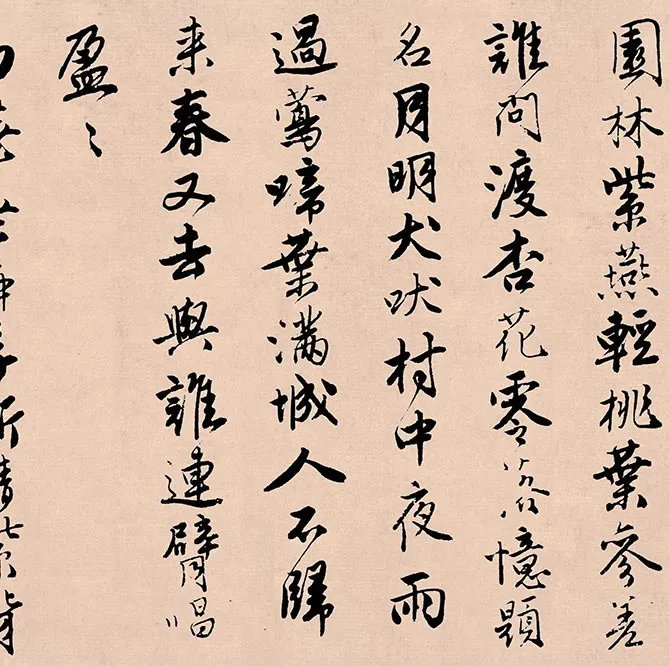 園林紫燕輕桃葉參差
誰問渡杏花零落憶題
名月明犬吠村中夜雨
過鶯啼葉滿城人不歸
来春又去與誰連臂唱
盈〻